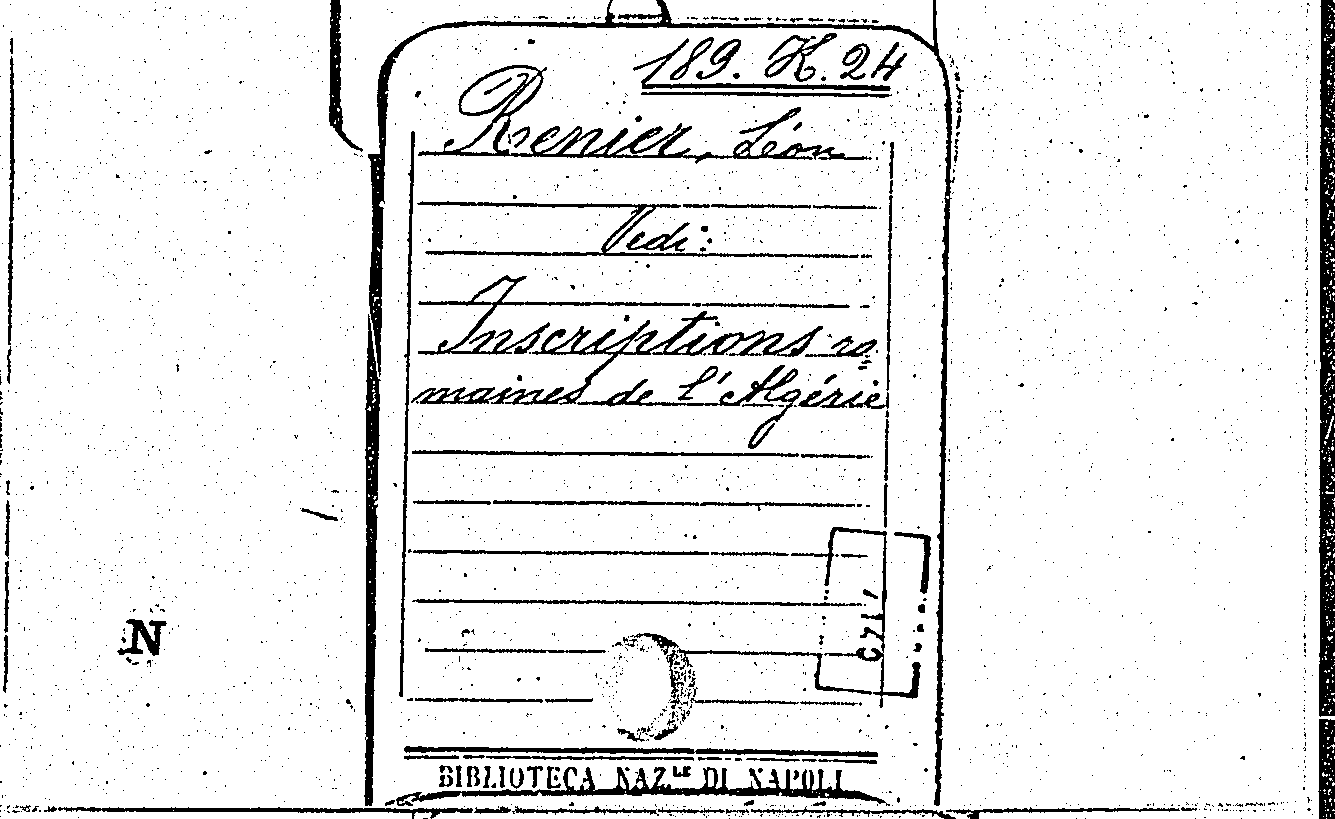 189. K. 24
Renier, Léon
Vedi:
Inscriptions ro=
maines de l'Algérie
N
BIBLIOTECA NAZ.LE DI NAPOLI